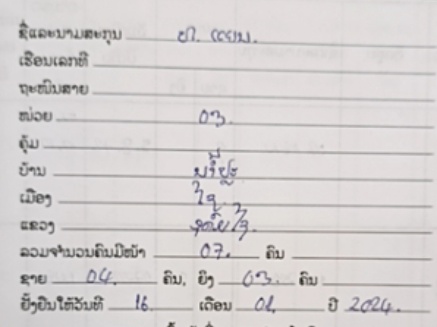 ຊື່ແລະນາມສະກຸນ
ເຮືອນເລກທີ
ຖະໜົນສາຍ
ໜ່ວຍ 03.
ຄຸ້ມ
ບ້ານ
ເມືອງ
ແຂວງ
ລວມຈຳນວນຄົນມີໜ້າ 07. ຄົນ
ຊາຍ 04. ຄົນ, ຍິງ 03. ຄົນ
ຢັ້ງຢືນໃຫ້ວັນທີ 16 ເດືອນ 01. ປີ 2024.